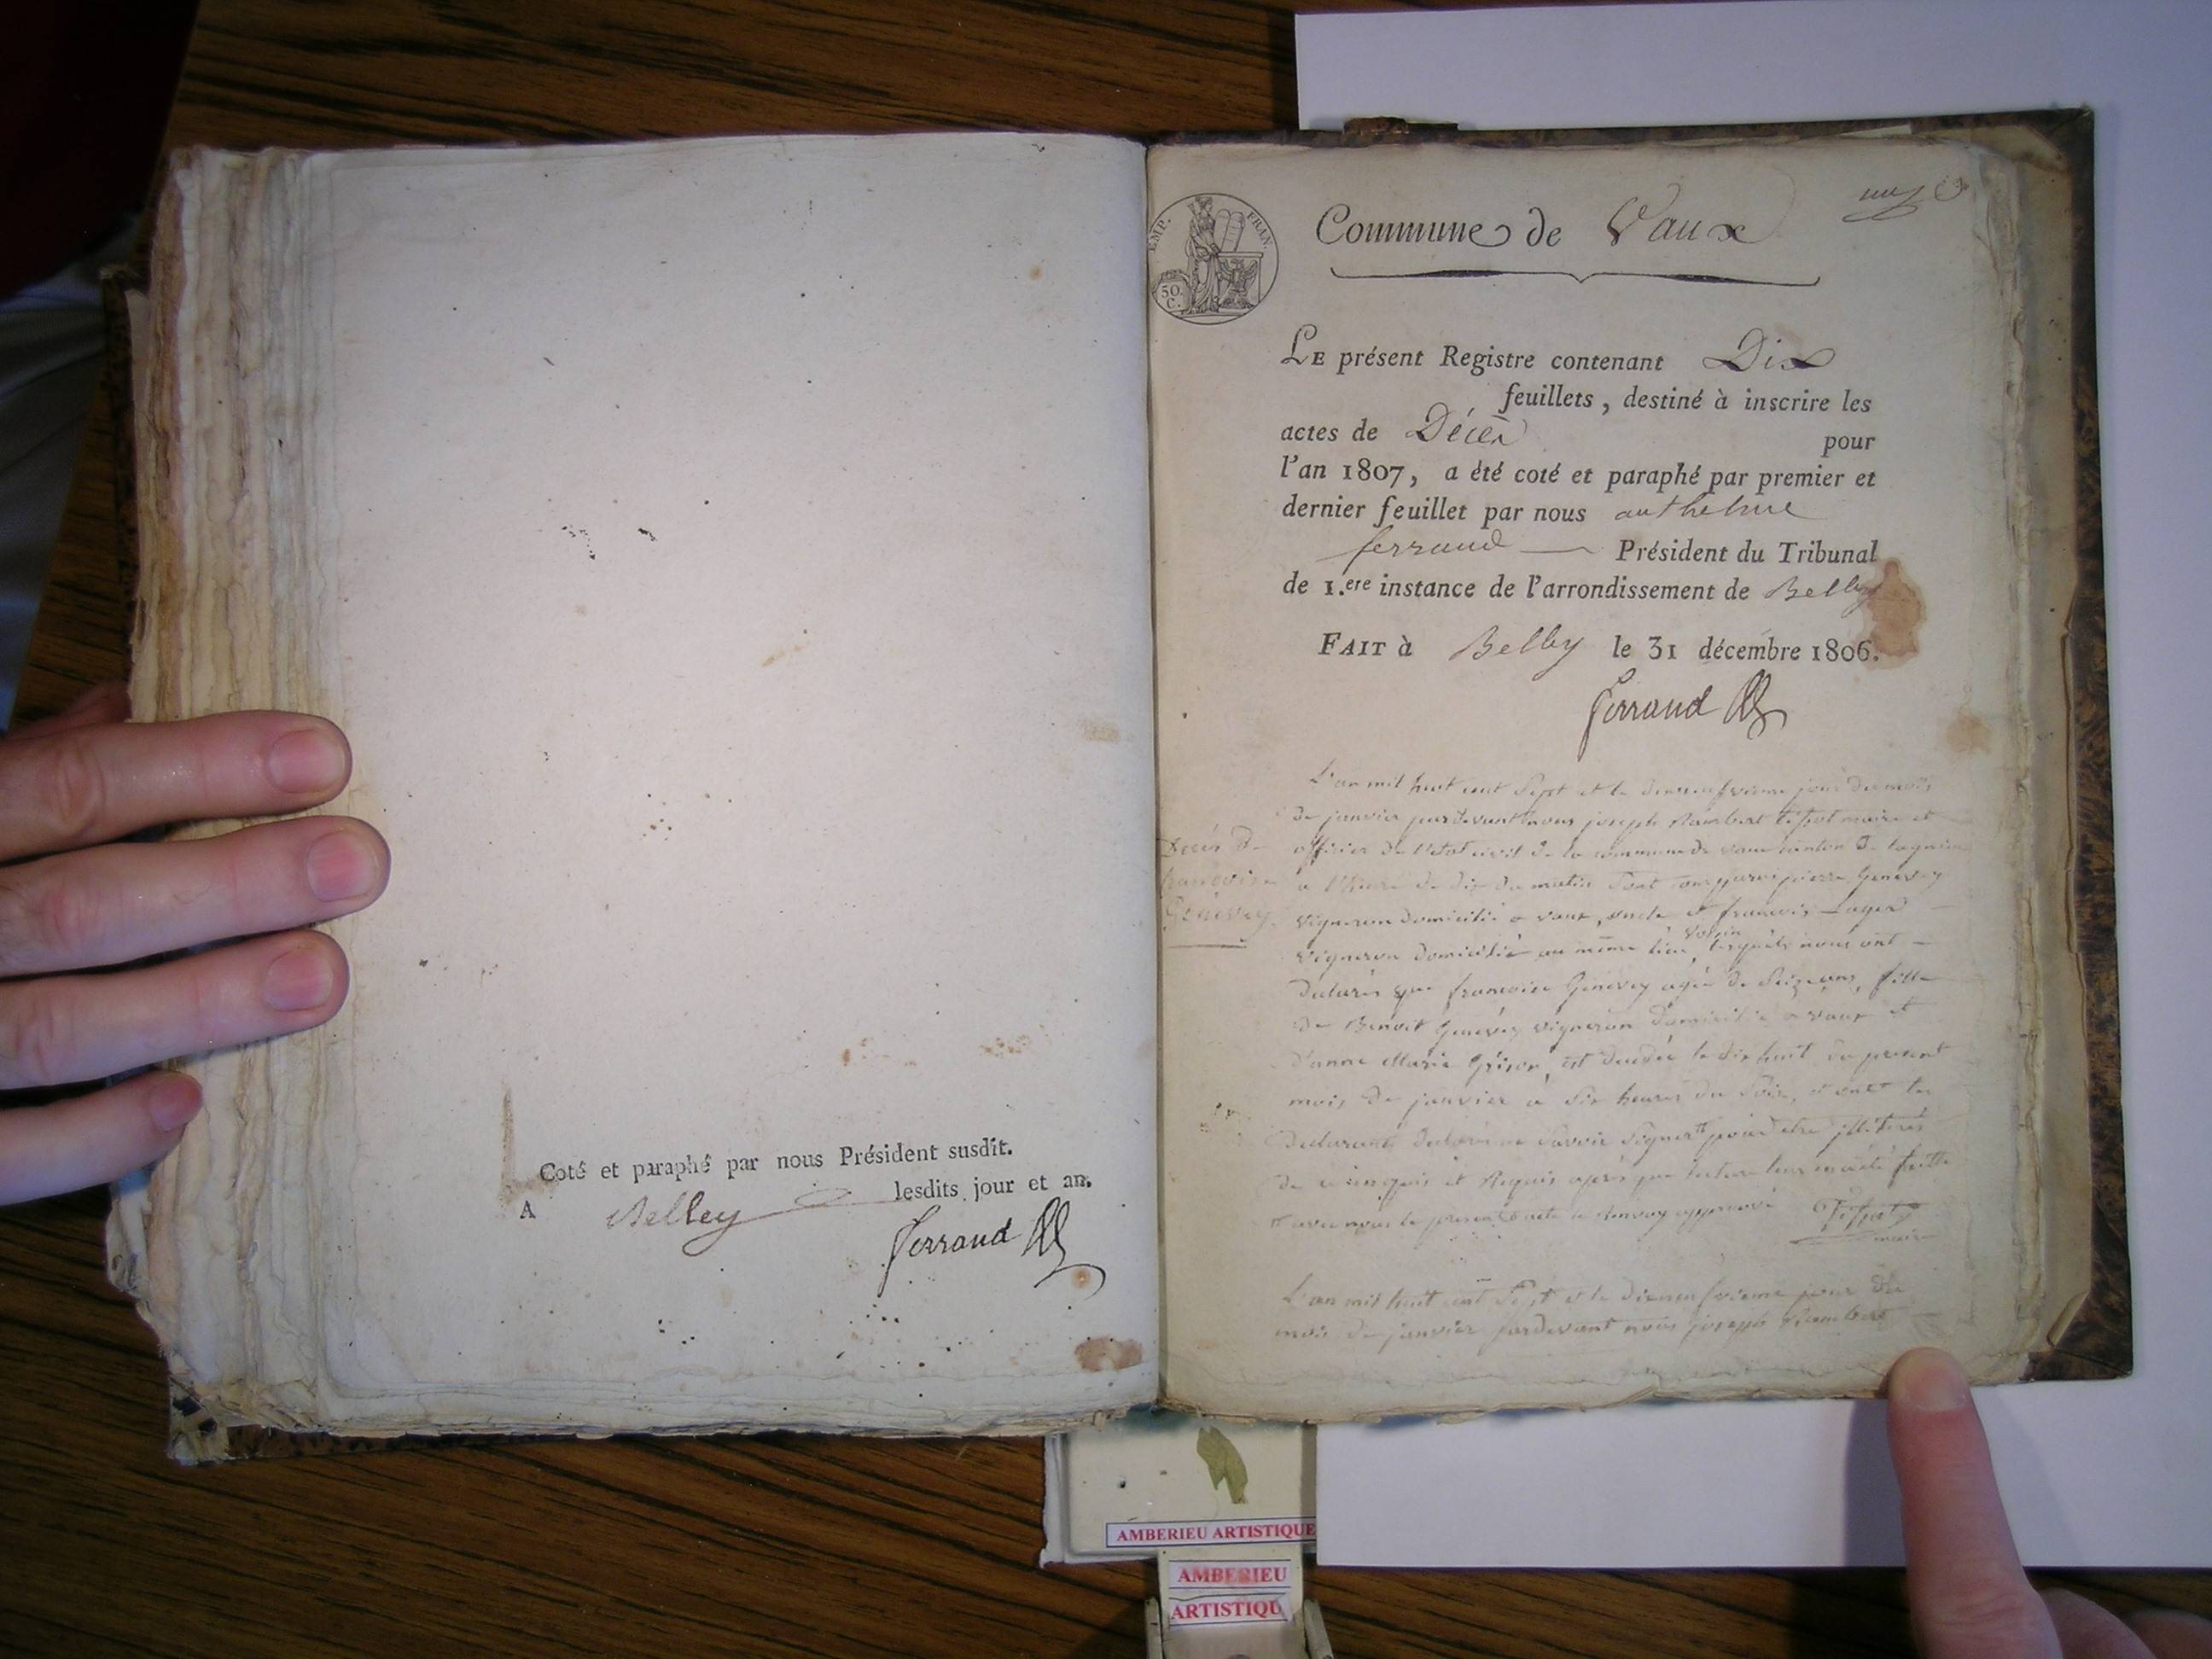 Coté et paraphé par nous Président susdit.
A Belley lesdits jour et an.
Ferrand
EMP. FRAN.
50. C.
Commune de Vaux
LE présent Registre contenant Dix
feuillets, destiné à inscrire les
actes de Décès pour
l'an 1807, a été coté et paraphé par premier et
dernier feuillet par nous anthelme
ferrand Président du Tribunal
de 1.ere instance de l'arrondissement de Belley
FAIT à Belley le 31 décembre 1806.
Ferrand
Décès de
françoise
Genevey
L'an mil huit cent Sept et le dixneufvieme jour du mois
de janvier pardevant nous joseph Rambert tissot maire et
officier de l'etat civil de la commune de vaux canton de lagnieu
a l'heure de dix du matin Sont comparus pierre Genevey
vigneron domicilié a vaux, oncle et francois
vigneron domicilié au même lieu, voisin lesquels nous ont
declarés que francoise Genevey agée de Seize ans, fille
de Benoit Genevey vigneron domicilié a vaux et
d'anne Marie Grison, est decedée le dix huit du present
mois de janvier à Six heures du Soir, et ont les
Declarants declarés ne Savoir Signer pour etre illiterés
de ce enquis et Requis après que lecture leur en a été faitte
et avec nous le present acte renvoy approuvé
maire
L'an mil huit cent Sept et le dixneufvieme jour du
mois de janvier pardevant nous joseph Rambert
AMBERIEU ARTISTIQUE
AMBERIEU
ARTISTIQU